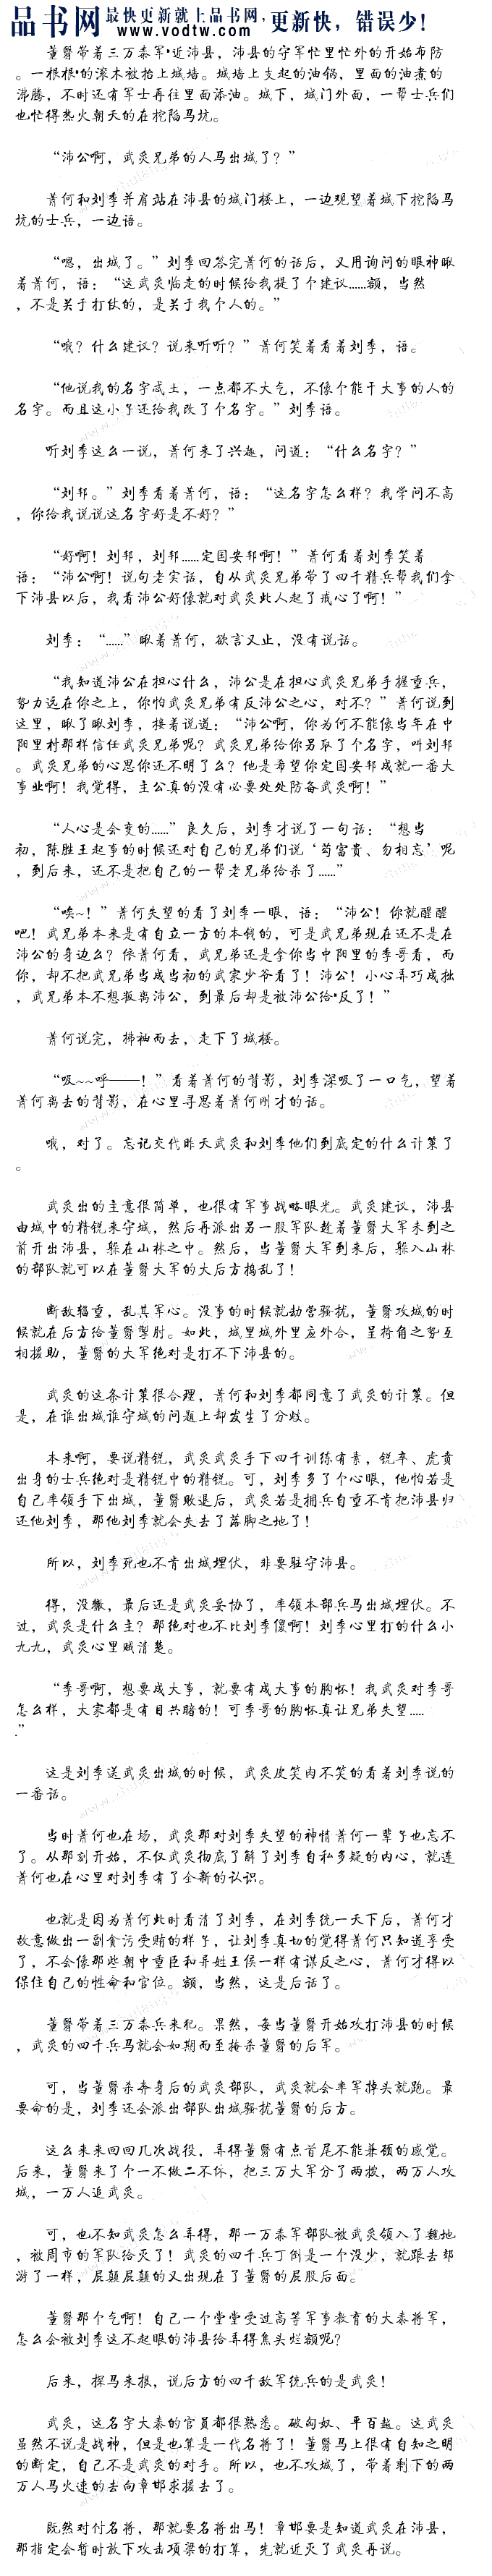 品书网 最快更新就上品书网, 更新快，错误少！
www.vodtw.com
董翳带着三万秦军*近沛县，沛县的守军忙里忙外的开始布防
。一根根*的滚木被抬上城墙。城墙上支起的油锅，里面的油煮的
沸腾，不时还有军士再往里面添油。城下，城门外面，一帮士兵们
也忙得热火朝天的在挖陷马坑。
“沛公啊，武炎兄弟的人马出城了？”
萧何和刘季并肩站在沛县的城门楼上，一边观望着城下挖陷马
坑的士兵，一边语。
“嗯，出城了。”刘季回答完萧何的话后，又用询问的眼神瞅
着萧何，语：“这武炎临走的时候给我提了个建议……额，当然
，不是关于打仗的，是关于我个人的。”
“哦？什么建议？说来听听？”萧何笑着看着刘季，语。
“他说我的名字忒土，一点都不大气，不像个能干大事的人的
名字。而且这小子还给我改了个名字。”刘季语。
听刘季这么一说，萧何来了兴趣，问道：“什么名字？”
“刘邦。”刘季看着萧何，语：“这名字怎么样？我学问不高
，你给我说说这名字好是不好？”
“好啊！刘邦，刘邦……定国安邦啊！”萧何看着刘季笑着
语：“沛公啊！说句老实话，自从武炎兄弟带了四千精兵帮我们拿
下沛县以后，我看沛公好像就对武炎此人起了戒心了啊！”
刘季：“……”瞅着萧何，欲言又止，没有说话。
“我知道沛公在担心什么，沛公是在担心武炎兄弟手握重兵，
势力远在你之上，你怕武炎兄弟有反沛公之心，对不？”萧何说到
这里，瞅了瞅刘季，接着说道：“沛公啊，你为何不能像当年在中
阳里村那样信任武炎兄弟呢？武炎兄弟给你另取了个名字，叫刘邦
。武炎兄弟的心思你还不明了么？他是希望你定国安邦成就一番大
事业啊！我觉得，主公真的没有必要处处防备武炎啊！”
“人心是会变的……”良久后，刘季才说了一句话：“想当
初，陈胜王起事的时候还对自己的兄弟们说‘苟富贵、勿相忘’呢
，到后来，还不是把自己的一帮老兄弟给杀了……”
“唉~！”萧何失望的看了刘季一眼，语：“沛公！你就醒醒
吧！武兄弟本来是有自立一方的本钱的，可是武兄弟现在还不是在
沛公的身边么？依萧何看，武兄弟还是拿你当中阳里的季哥看，而
你，却不把武兄弟当成当初的武家少爷看了！沛公！小心弄巧成拙
，武兄弟本不想叛离沛公，到最后却是被沛公给*反了！”
萧何说完，拂袖而去，走下了城楼。
“吸~~呼——！”看着萧何的背影，刘季深吸了一口气，望着
萧何离去的背影，在心里寻思着萧何刚才的话。
哦，对了。忘记交代昨天武炎和刘季他们到底定的什么计策了
。
武炎出的主意很简单，也很有军事战略眼光。武炎建议，沛县
由城中的精锐来守城，然后再派出另一股军队趁着董翳大军未到之
前开出沛县，躲在山林之中。然后，当董翳大军到来后，躲入山林
的部队就可以在董翳大军的大后方捣乱了！
断敌辎重，乱其军心。没事的时候就劫营骚扰，董翳攻城的时
候就在后方给董翳掣肘。如此，城里城外里应外合，呈掎角之势互
相援助，董翳的大军绝对是打不下沛县的。
武炎的这条计策很合理，萧何和刘季都同意了武炎的计策。但
是，在谁出城谁守城的问题上却发生了分歧。
本来啊，要说精锐，武炎武炎手下四千训练有素，锐卒、虎贲
出身的士兵绝对是精锐中的精锐。可，刘季多了个心眼，他怕若是
自己率领手下出城，董翳败退后，武炎若是拥兵自重不肯把沛县归
还他刘季，那他刘季就会失去了落脚之地了！
所以，刘季死也不肯出城埋伏，非要驻守沛县。
得，没辙，最后还是武炎妥协了，率领本部兵马出城埋伏。不
过，武炎是什么主？那绝对也不比刘季傻啊！刘季心里打的什么小
九九，武炎心里贼清楚。
“季哥啊，想要成大事，就要有成大事的胸怀！我武炎对季哥
怎么样，大家都是有目共睹的！可季哥的胸怀真让兄弟失望……
”
这是刘季送武炎出城的时候，武炎皮笑肉不笑的看着刘季说的
一番话。
当时萧何也在场，武炎那对刘季失望的神情萧何一辈子也忘不
了。从那刻开始，不仅武炎彻底了解了刘季自私多疑的内心，就连
萧何也在心里对刘季有了全新的认识。
也就是因为萧何此时看清了刘季，在刘季统一天下后，萧何才
故意做出一副贪污受贿的样子，让刘季真切的觉得萧何只知道享受
了，不会像那些朝中重臣和异姓王侯一样有谋反之心，萧何才得以
保住自己的性命和官位。额，当然，这是后话了。
董翳带着三万秦兵来犯。果然，每当董翳开始攻打沛县的时候
，武炎的四千兵马就会如期而至掩杀董翳的后军。
可，当董翳杀奔身后的武炎部队，武炎就会率军掉头就跑。最
要命的是，刘季还会派出部队出城骚扰董翳的后方。
这么来来回回几次战役，弄得董翳有点首尾不能兼顾的感觉。
后来，董翳来了个一不做二不休，把三万大军分了两拨，两万人攻
城，一万人追武炎。
可，也不知武炎怎么弄得，那一万秦军部队被武炎领入了魏地
，被周市的军队给灭了！武炎的四千兵丁倒是一个没少，就跟去郊
游了一样，屁颠屁颠的又出现在了董翳的屁股后面。
董翳那个气啊！自己一个堂堂受过高等军事教育的大秦将军，
怎么会被刘季这不起眼的沛县给弄得焦头烂额呢？
后来，探马来报，说后方的四千敌军统兵的是武炎！
武炎，这名字大秦的官员都很熟悉。破匈奴、平百越。这武炎
虽然不说是战神，但是也算是一代名将了！董翳马上很有自知之明
的断定，自己不是武炎的对手。所以，也不攻城了，带着剩下的两
万人马火速的去向章邯求援去了。
既然对付名将，那就要名将出马！章邯要是知道武炎在沛县，
那指定会暂时放下攻击项梁的打算，先就近灭了武炎再说。